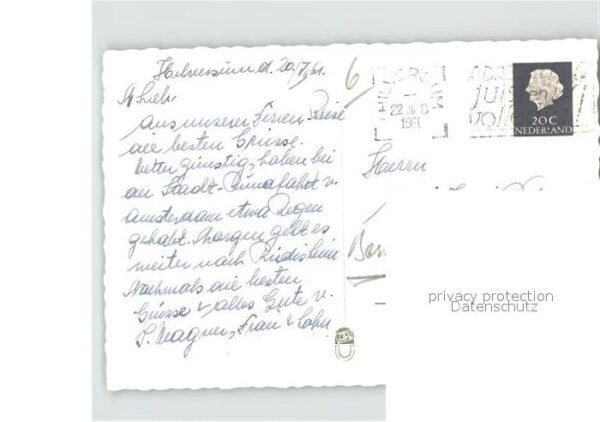 Hilversum d. 20./7.61.
M. Lieb.
Aus unserer Ferien Reise
die besten Grüsse.
Wetter günstig, haben bei
der Stadt-Rundfahrt v.
Amsterdam etwa Regen
gehabt. Morgen geht es
weiter nach
Nochmals die besten
Grüsse & alles Gute v.
Wagner, Frau & Sohn
6
HILVERSUM
22
1961
ADR
JUIS
VOL
20 C
NEDERLAND
Herrn
privacy protection
Datenschutz